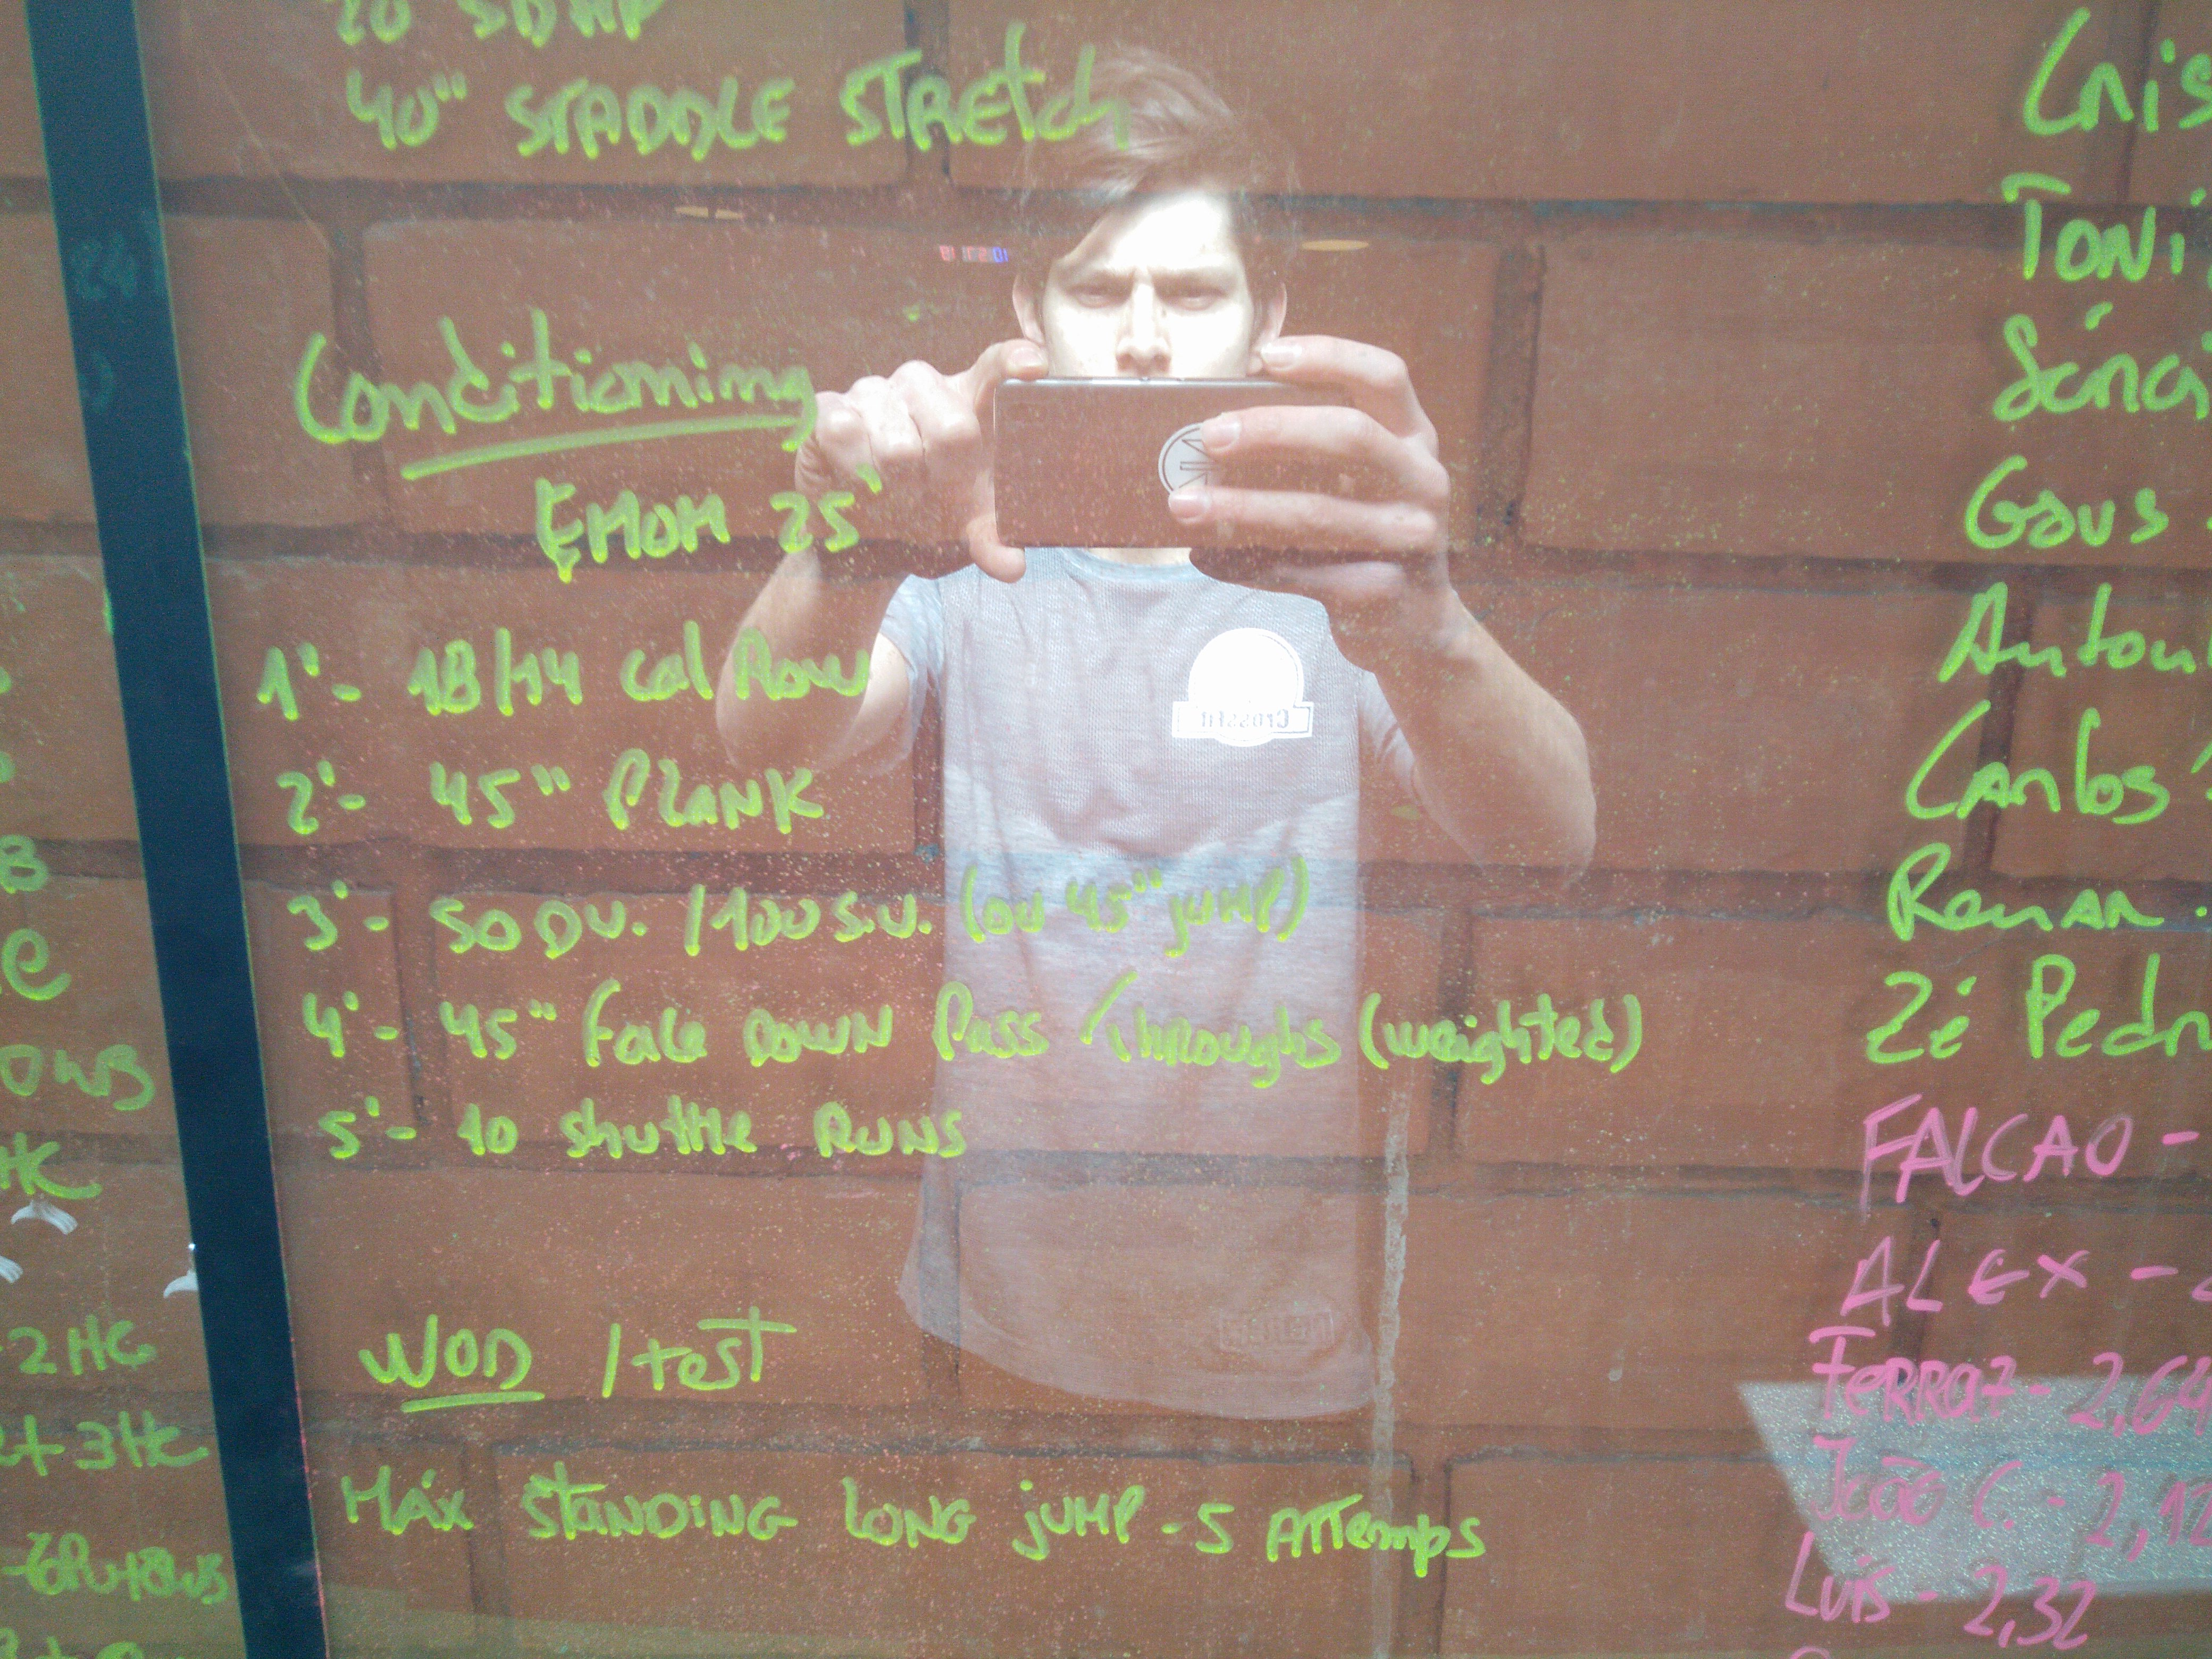 20 SDHP
40" STADDLE STRETCH
Conditioning
EMOM 25'
1'- 18/14 cal Row
2'- 45" PLANK
3'- 50 DU. /100 S.U. (ou 45" jUMP)
4'- 45" Face DOWN Pass Throughs (weighted)
5'- 10 shuttle RUNS
WOD / test
Máx STANDING LONG jUMP - 5 ATTemps
Cris
TONI
Gaus
Carlos
Renan
Zé Pedr
FALCAO -
ALEX -
FERRAZ - 2,64
João C. - 2,12
Luis - 2,32
B
e
OWB
HC
- 2 HC
+ 3HC
CrossFit